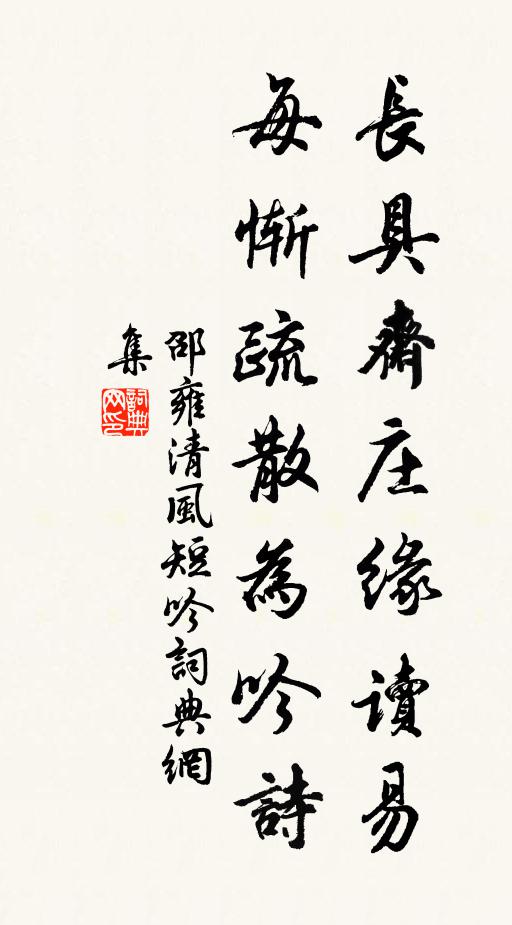 長具齋庄緣读易
每慚疏散為吟詩
邵雍清風短吟詞典網
集
詞典
网印